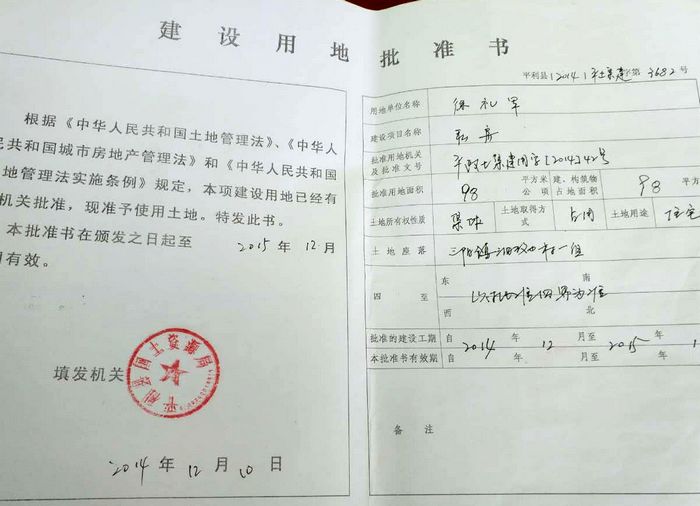 建设用地批准书
根据《中华人民共和国土地管理法》、《中华人
民共和国城市房地产管理法》和《中华人民共和国
地管理法实施条例》规定，本项建设用地已经有
机关批准，现准予使用土地。特发此书。
本批准书在颁发之日起至 2015 年 12 月
有效。
平利县国土资源局
填发机关
2014 年 12 月 10 日
平利县[2014]平土集建字第3682号
用地单位名称 徐礼军
建设项目名称
批准用地机关及批准文号 平政土集建用字[2014]42号
批准用地面积 98 平方米 公顷 建、构筑物占地面积 98 平方
土地所有权性质 集体 土地取得方式 占用 土地用途 住宅
土地座落 三阳镇 村一组
四至 东 南 西 北 以实地四界为准
批准的建设工期 自 年 月至 年
本批准书有效期 自 2014 年 12 月至 2015 年 1
备注